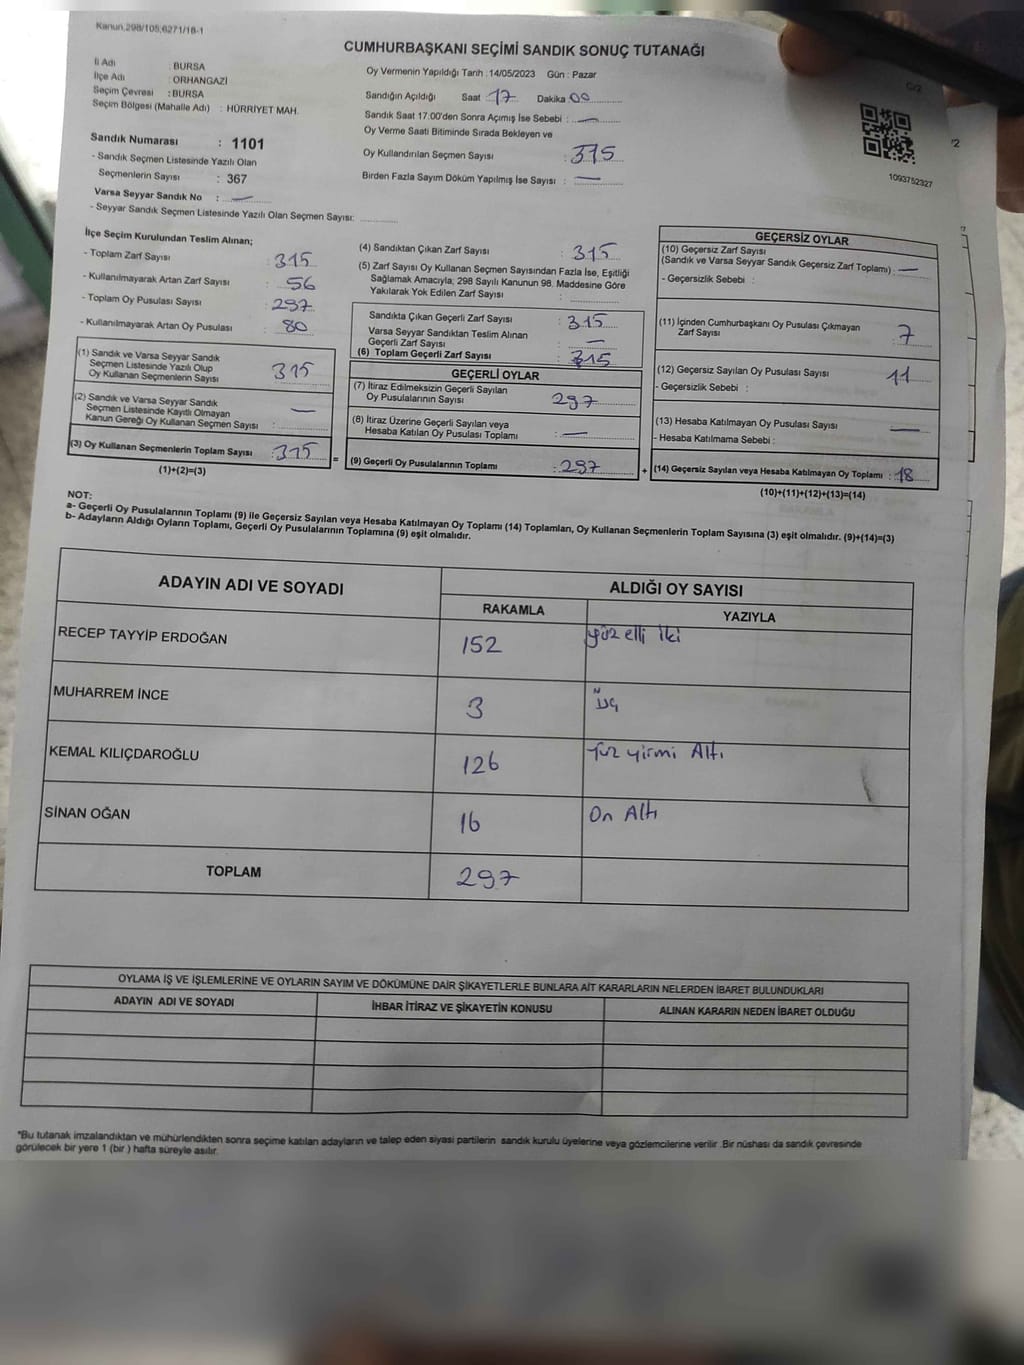 Kanun.298/105,6271/16-1
CUMHURBAŞKANI SEÇİMİ SANDIK SONUÇ TUTANAĞI
C/2
İl Adı : BURSA
İlçe Adı : ORHANGAZİ
Seçim Çevresi : BURSA
Seçim Bölgesi (Mahalle Adı) : HÜRRİYET MAH.
Sandık Numarası : 1101
- Sandık Seçmen Listesinde Yazılı Olan
Seçmenlerin Sayısı : 367
Varsa Seyyar Sandık No : —
- Seyyar Sandık Seçmen Listesinde Yazılı Olan Seçmen Sayısı:
Oy Vermenin Yapıldığı Tarih : 14/05/2023 Gün : Pazar
Sandığın Açıldığı Saat 17 Dakika 00
Sandık Saat 17:00'den Sonra Açımış İse Sebebi : —
Oy Verme Saati Bitiminde Sırada Bekleyen ve
Oy Kullandırılan Seçmen Sayısı : 315
Birden Fazla Sayım Döküm Yapılmış İse Sayısı : —
1093752327
İlçe Seçim Kurulundan Teslim Alınan;
- Toplam Zarf Sayısı : 315
- Kullanılmayarak Artan Zarf Sayısı : 56
- Toplam Oy Pusulası Sayısı : 297
- Kullanılmayarak Artan Oy Pusulası : 80
(1) Sandık ve Varsa Seyyar Sandık
Seçmen Listesinde Yazılı Olup
Oy Kullanan Seçmenlerin Sayısı : 315
(2) Sandık ve Varsa Seyyar Sandık
Seçmen Listesinde Kayıtlı Olmayan
Kanun Gereği Oy Kullanan Seçmen Sayısı : —
(3) Oy Kullanan Seçmenlerin Toplam Sayısı : 315
(1)+(2)=(3)
(4) Sandıktan Çıkan Zarf Sayısı : 315
(5) Zarf Sayısı Oy Kullanan Seçmen Sayısından Fazla İse, Eşitliği
Sağlamak Amacıyla, 298 Sayılı Kanunun 98. Maddesine Göre
Yakılarak Yok Edilen Zarf Sayısı :
Sandıkta Çıkan Geçerli Zarf Sayısı : 315
Varsa Seyyar Sandıktan Teslim Alınan
Geçerli Zarf Sayısı : —
(6) Toplam Geçerli Zarf Sayısı : 315
GEÇERLİ OYLAR
(7) İtiraz Edilmeksizin Geçerli Sayılan
Oy Pusulalarının Sayısı : 297
(8) İtiraz Üzerine Geçerli Sayılan veya
Hesaba Katılan Oy Pusulası Toplamı : —
= (9) Geçerli Oy Pusulalarının Toplamı : 297
GEÇERSİZ OYLAR
(10) Geçersiz Zarf Sayısı
(Sandık ve Varsa Seyyar Sandık Geçersiz Zarf Toplamı) : —
- Geçersizlik Sebebi :
(11) İçinden Cumhurbaşkanı Oy Pusulası Çıkmayan
Zarf Sayısı : 7
(12) Geçersiz Sayılan Oy Pusulası Sayısı : 11
- Geçersizlik Sebebi :
(13) Hesaba Katılmayan Oy Pusulası Sayısı : —
- Hesaba Katılmama Sebebi :
+ (14) Geçersiz Sayılan veya Hesaba Katılmayan Oy Toplamı : 18
(10)+(11)+(12)+(13)=(14)
NOT:
a- Geçerli Oy Pusulalarının Toplamı (9) ile Geçersiz Sayılan veya Hesaba Katılmayan Oy Toplamı (14) Toplamları, Oy Kullanan Seçmenlerin Toplam Sayısına (3) eşit olmalıdır. (9)+(14)=(3)
b- Adayların Aldığı Oyların Toplamı, Geçerli Oy Pusulalarının Toplamına (9) eşit olmalıdır.
ADAYIN ADI VE SOYADI ALDIĞI OY SAYISI
RAKAMLA YAZIYLA
RECEP TAYYİP ERDOĞAN 152 yüz elli iki
MUHARREM İNCE 3 Üç
KEMAL KILIÇDAROĞLU 126 Yüz yirmi Altı
SİNAN OĞAN 16 On Altı
TOPLAM 297
OYLAMA İŞ VE İŞLEMLERİNE VE OYLARIN SAYIM VE DÖKÜMÜNE DAİR ŞİKAYETLERLE BUNLARA AİT KARARLARIN NELERDEN İBARET BULUNDUKLARI
ADAYIN ADI VE SOYADI İHBAR İTİRAZ VE ŞİKAYETİN KONUSU ALINAN KARARIN NEDEN İBARET OLDUĞU
*Bu tutanak imzalandıktan ve mühürlendikten sonra seçime katılan adayların ve talep eden siyasi partilerin sandık kurulu üyelerine veya gözlemcilerine verilir .Bir nüshası da sandık çevresinde
görülecek bir yere 1 (bir ) hafta süreyle asılır.